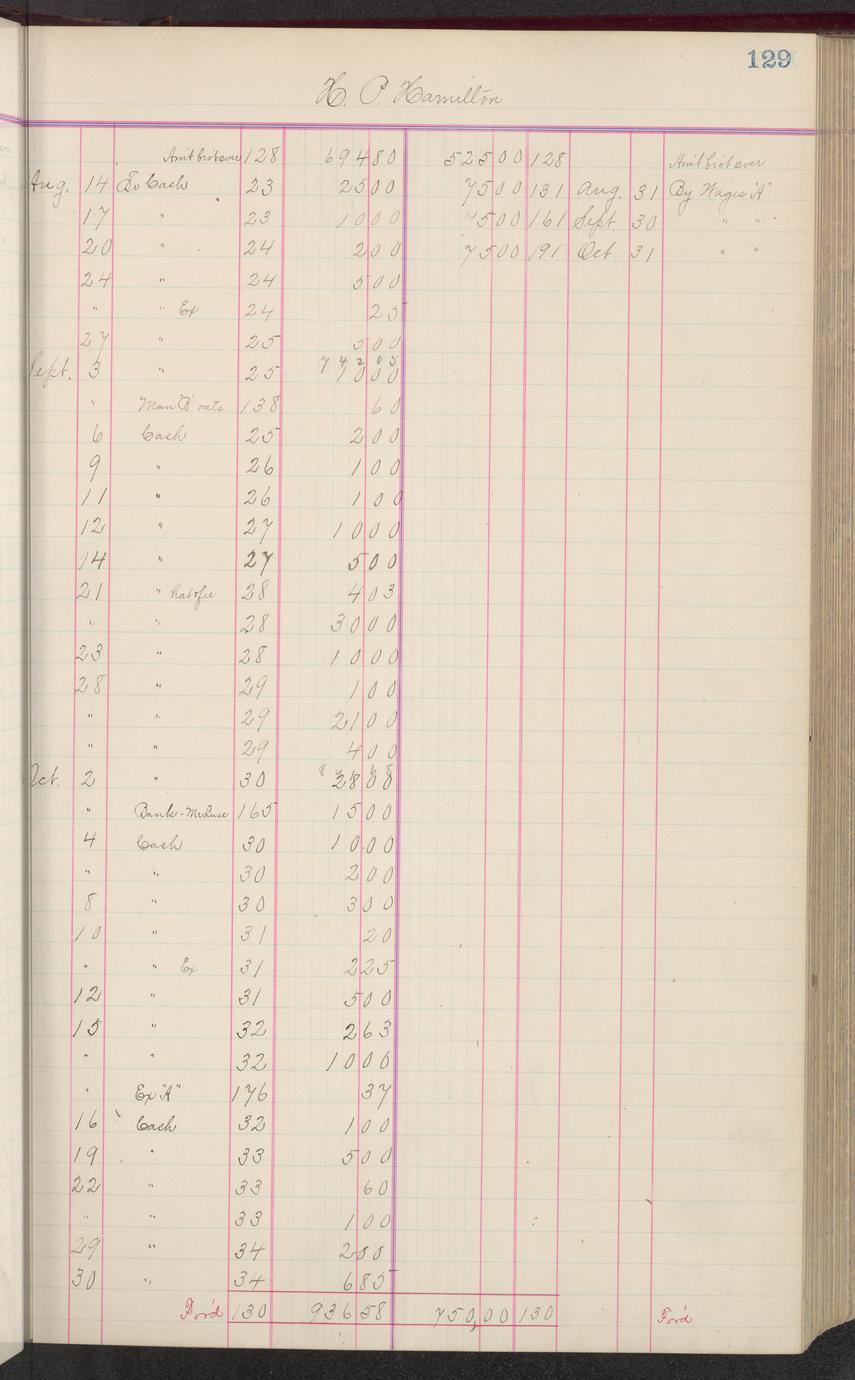 129
H. P. Hamilton
Am't bro't over 128 694 80 525 00 128 Am't bro't over
Aug. 14 To Cash 23 25 00 75 00 131 Aug. 31 By Wages "A"
17 " 23 10 00 75 00 161 Sept. 30 " "
20 " 24 2 00 75 00 191 Oct. 31 " "
24 " 24 5 00
" " Ex 24 25
27 " 25 5 00
742 05
Sept. 3 " 25 10 00
" Man "B" oats 138 60
6 Cash 25 2 00
9 " 26 1 00
11 " 26 1 00
12 " 27 10 00
14 " 27 5 00
21 " 28 4 03
" " 28 30 00
23 " 28 10 00
28 " 29 1 00
" " 29 21 00
" " 29 4 00
Oct. 2 " 30 28 00
" Bank - 165 15 00
4 Cash 30 10 00
" " 30 2 00
8 " 30 3 00
10 " 31 20
" " Ex 31 2 25
12 " 31 5 00
15 " 32 2 63
" " 32 10 00
" Ex "A" 176 37
16 Cash 32 1 00
19 " 33 5 00
22 " 33 60
" " 33 1 00
29 " 34 2 00
30 " 34 6 85
For'd 130 936 58 750,00 130 For'd